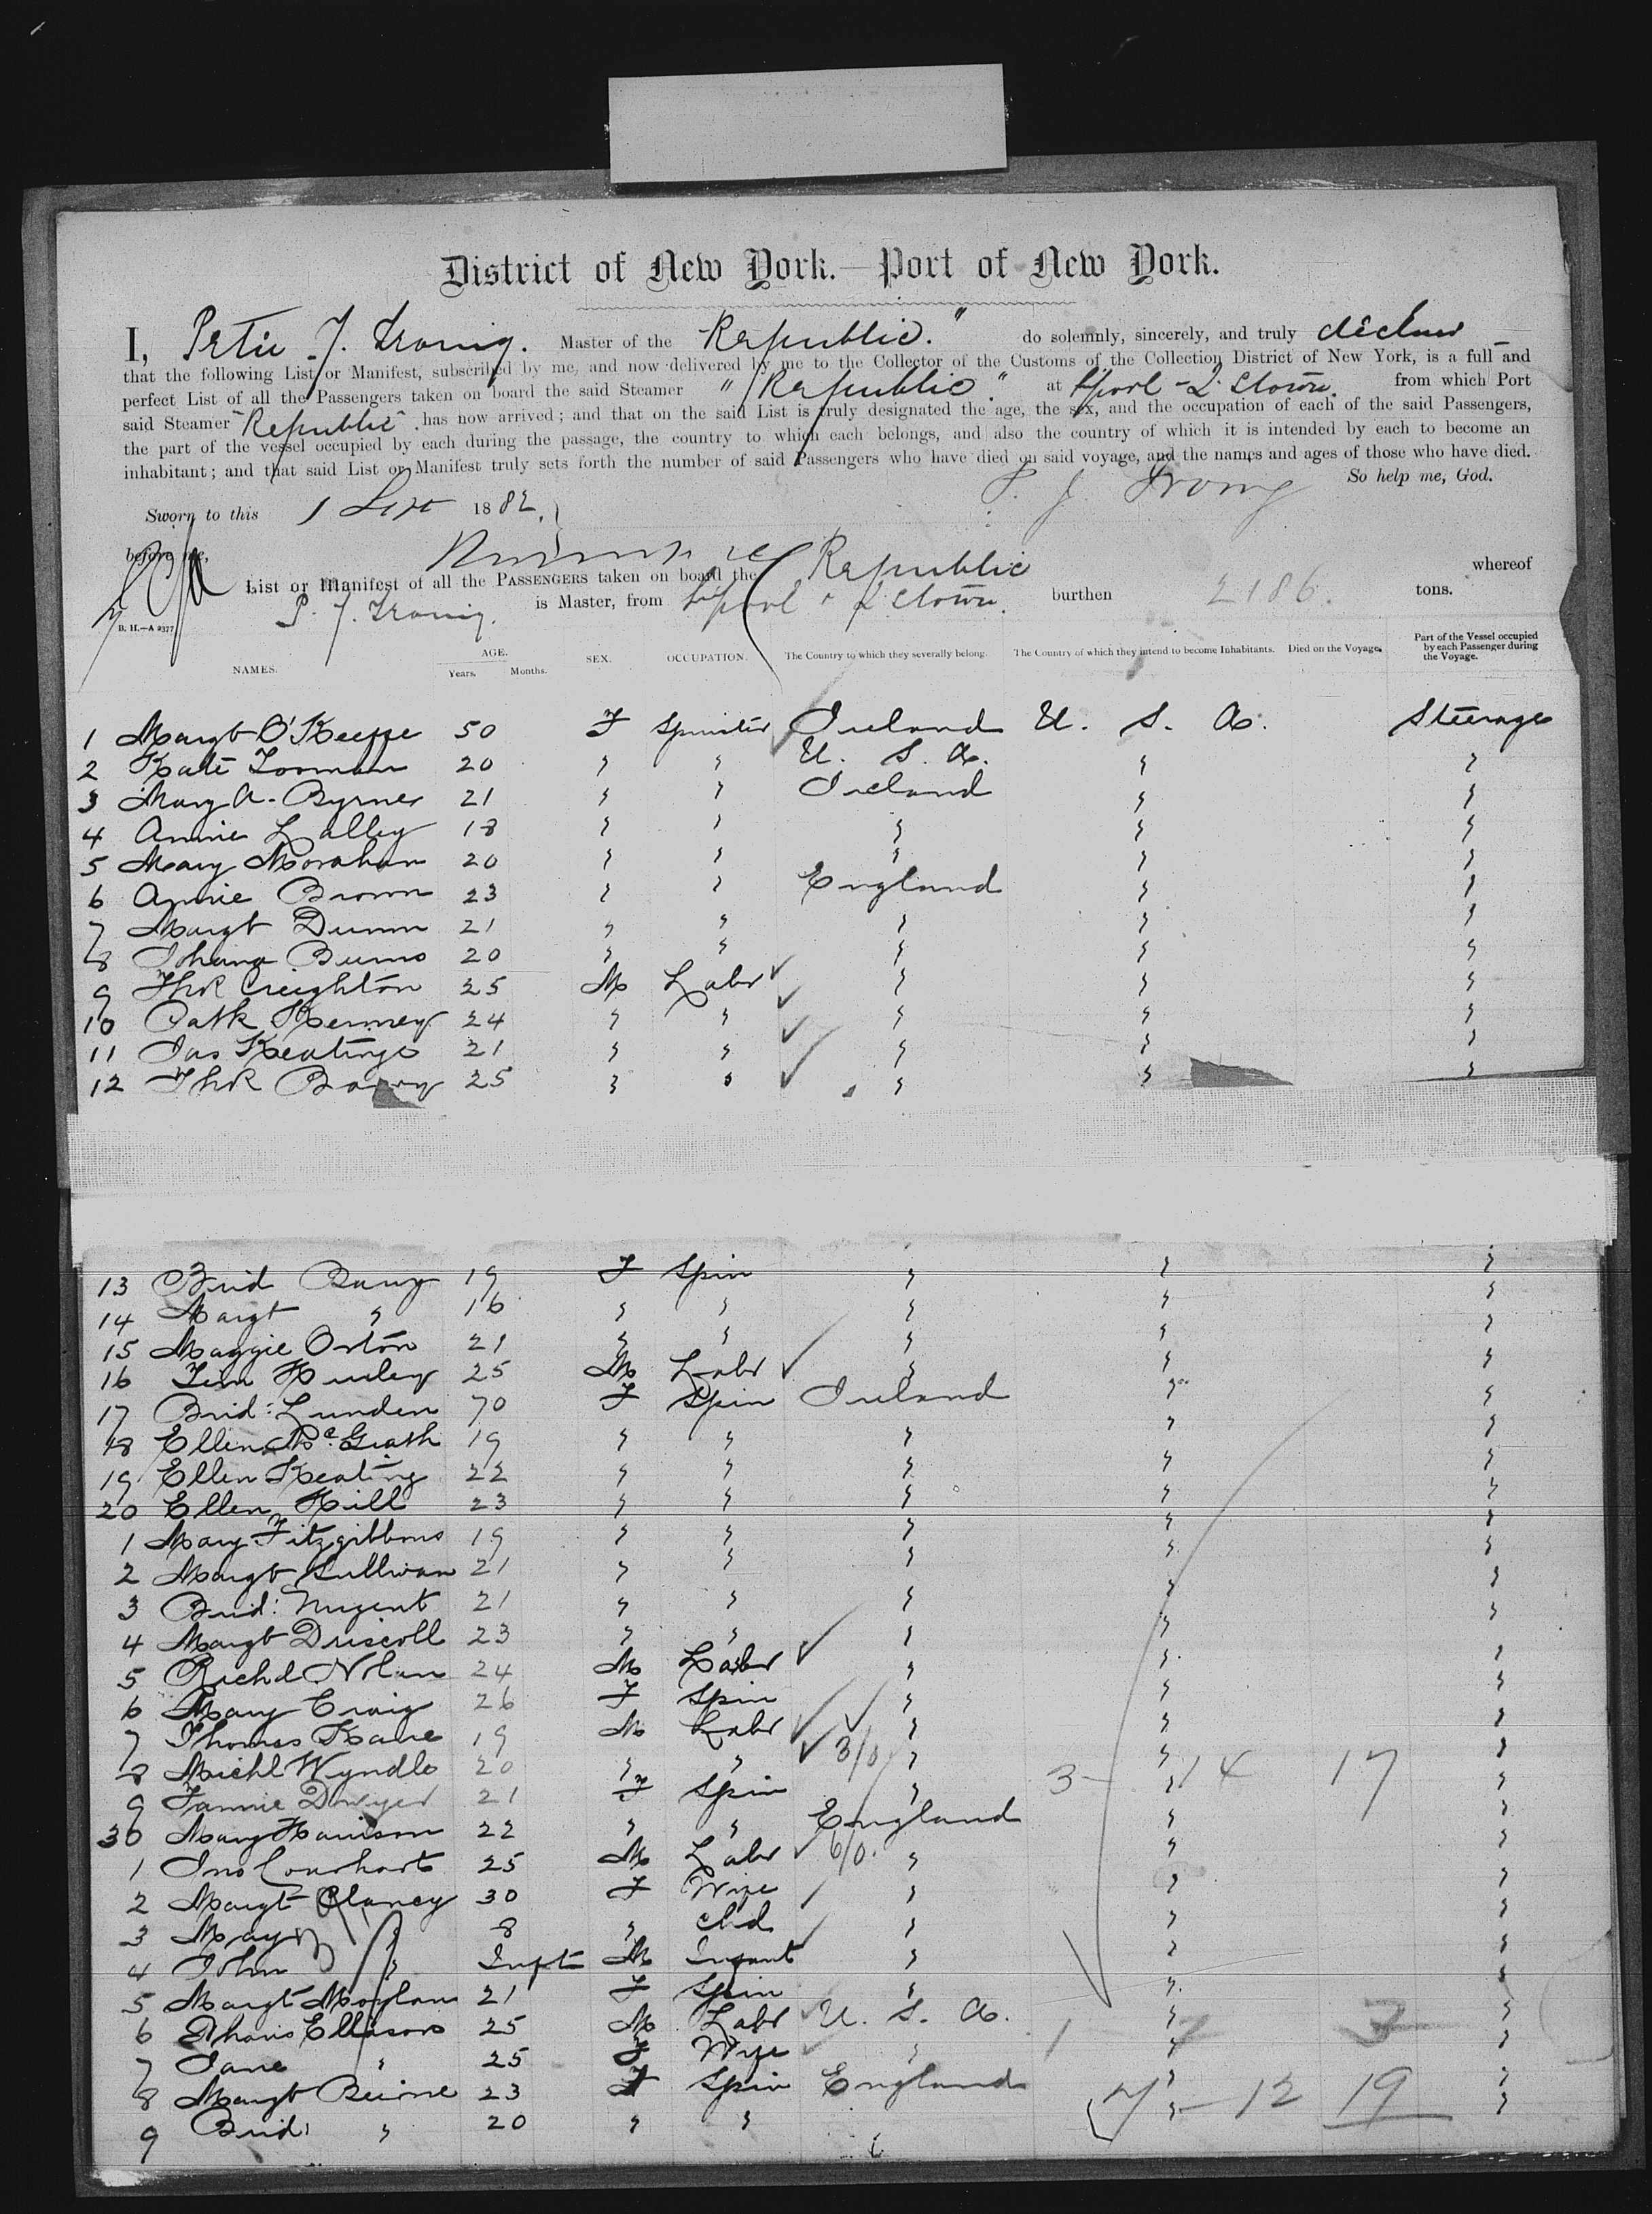 District of New York.—Port of New York.
I, Peter J. Irving. Master of the "Republic." do solemnly, sincerely, and truly declare
that the following List or Manifest, subscribed by me, and now delivered by me to the Collector of the Customs of the Collection District of New York, is a full and
perfect List of all the Passengers taken on board the said Steamer "Republic." at L'pool - Q'town. from which Port
said Steamer "Republic" has now arrived; and that on the said List is truly designated the age, the sex, and the occupation of each of the said Passengers,
the part of the vessel occupied by each during the passage, the country to which each belongs, and also the country of which it is intended by each to become an
inhabitant; and that said List or Manifest truly sets forth the number of said Passengers who have died on said voyage, and the names and ages of those who have died.
So help me, God.
P. J. Irving
Sworn to this 1 Sept 1882,
before me,
List or Manifest of all the PASSENGERS taken on board the Republic whereof
P. J. Irving. is Master, from L'pool & Q'town. burthen 2186. tons.
B. H.—A 2377
NAMES. AGE. Years. Months. SEX. OCCUPATION. The Country to which they severally belong. The Country of which they intend to become Inhabitants. Died on the Voyage. Part of the Vessel occupied by each Passenger during the Voyage.
1 Margt O'Keeffe 50 F Spinster Ireland U. S. A. Steerage
2 Kate 20 " " U. S. A. " "
3 Mary A. Byrnes 21 " " Ireland " "
4 Annie Lalley 18 " " " " "
5 Mary Morahan 20 " " " " "
6 Annie Brown 23 " " England " "
7 Margt Dunn 21 " " " " "
8 Johana Burns 20 " " " " "
9 Creighton 25 M Labr " " "
10 Patk Kenney 24 " " " " "
11 Jas Keating 21 " " " " "
12 Barry 25 " " " " "
13 Brid Barry 19 F Spin " " "
14 Margt " 16 " " " " "
15 Maggie Orton 21 " " " " "
16 Tim Hurley 25 M Labr " " "
17 Brid: Lunden 70 F Spin Ireland " "
18 Ellen McGrath 19 " " " " "
19 Ellen Keating 22 " " " " "
20 Ellen Hill 23 " " " " "
1 Mary Fitzgibbons 19 " " " " "
2 Margt Sullivan 21 " " " " "
3 Brid: Nugent 21 " " " " "
4 Margt Driscoll 23 " " " " "
5 Richd Nolan 24 M Labr " " "
6 Mary Craig 26 F Spin " " "
7 Thomas Kane 19 M Labr " " "
8 Michl Wyndle 20 " " 3/0 " " "
9 Fannie Dwyer 21 F Spin " 3 - 14 17 " "
30 Mary Harrison 22 " " England " "
1 Jno 25 M Labr 6/0. " " "
2 Margt Clancy 30 F Wife " " "
3 Mary " 8 " Chd " " "
4 John " Inft M Infant " " "
5 Margt Moylan 21 F Spin " " "
6 25 M Labr U. S. A. " "
7 Jane " 25 F Wife " " "
8 Margt Beirne 23 F Spin England " "
9 Brid: " 20 " " 7 - 12 19 " "